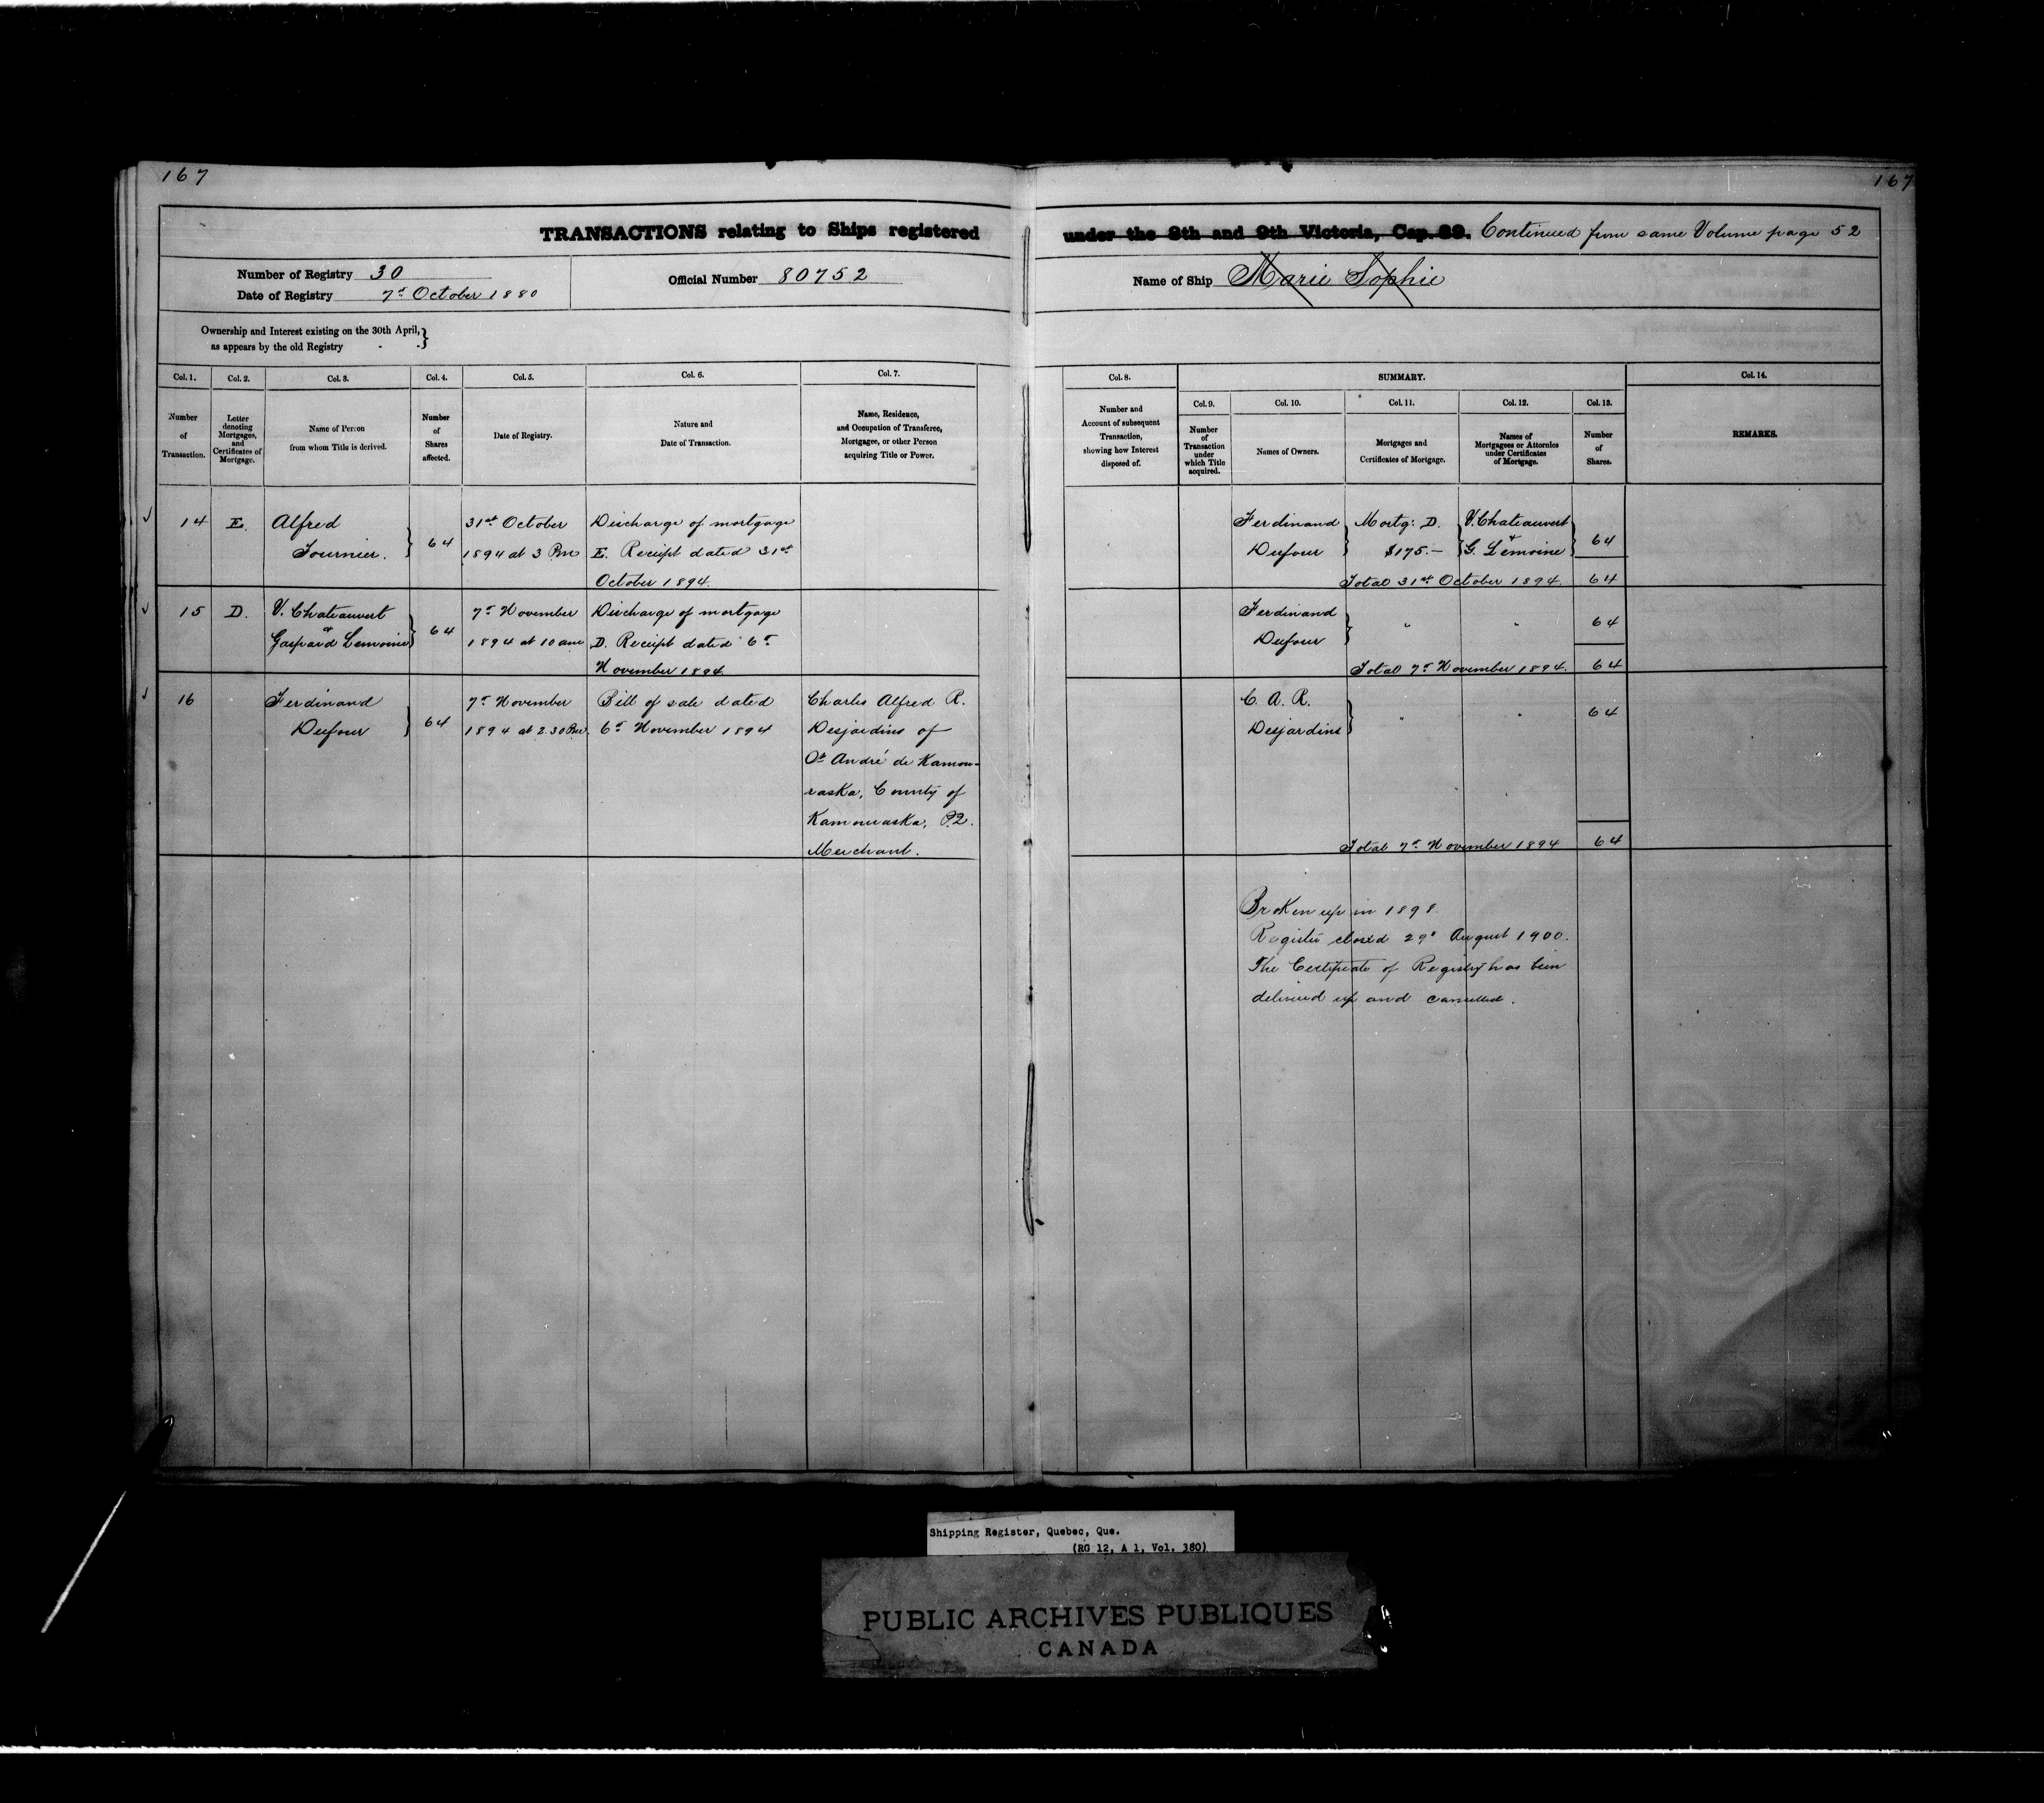 167
167
TRANSACTIONS relating to Ships registered under the 8th and 9th Victoria, Cap. 89. Continued from same Volume page 52
Number of Registry 30
Date of Registry 7th October 1880
Official Number 80752
Name of Ship Marie Sophie
Ownership and Interest existing on the 30th April,
as appears by the old Registry - - }
Col. 1.
Number
of
Transaction.
Col. 2.
Letter
denoting
Mortgages,
and
Certificates of
Mortgage.
Col. 3.
Name of Person
from whom Title is derived.
Col. 4.
Number
of
Shares
affected.
Col. 5.
Date of Registry.
Col. 6.
Nature and
Date of Transaction.
Col. 7.
Name, Residence,
and Occupation of Transferee,
Mortgagee, or other Person
acquiring Title or Power.
Col. 8.
Number and
Account of subsequent
Transaction,
showing how Interest
disposed of.
SUMMARY.
Col. 9.
Number
of
Transaction
under
which Title
acquired.
Col. 10.
Names of Owners.
Col. 11.
Mortgages and
Certificates of Mortgage.
Col. 12.
Names of
Mortgagees or Attornies
under Certificates
of Mortgage.
Col. 13.
Number
of
Shares.
Col. 14.
REMARKS.
14 E. Alfred
Fournier. } 64
31st October
1894 at 3 Pm
Discharge of mortgage
E. Receipt dated 31st
October 1894.
Ferdinand
Dufour }
Mortg: D.
$175.—
V. Chateauvert
&
G. Lemoine } 64
Total 31st October 1894. 64
15 D. V. Chateauvert
&
Gaspard Lemoine } 64
7th November
1894 at 10 am
Discharge of mortgage
D. Receipt dated 6th
November 1894.
Ferdinand
Dufour } " " 64
Total 7th November 1894. 64
16 Ferdinand
Dufour } 64
7th November
1894 at 2.30 Pm.
Bill of sale dated
6th November 1894
Charles Alfred R.
Desjardins of
St André de Kamou-
raska, County of
Kamouraska, P.Q.
Merchant.
C. A. R.
Desjardins } " " 64
Total 7th November 1894 64
Broken up in 1898.
Register closed 29th August 1900.
The Certificate of Registry has been
delivered up and cancelled.
Shipping Register, Quebec, Que.
(RG 12, A 1, Vol. 380)
PUBLIC ARCHIVES PUBLIQUES
CANADA